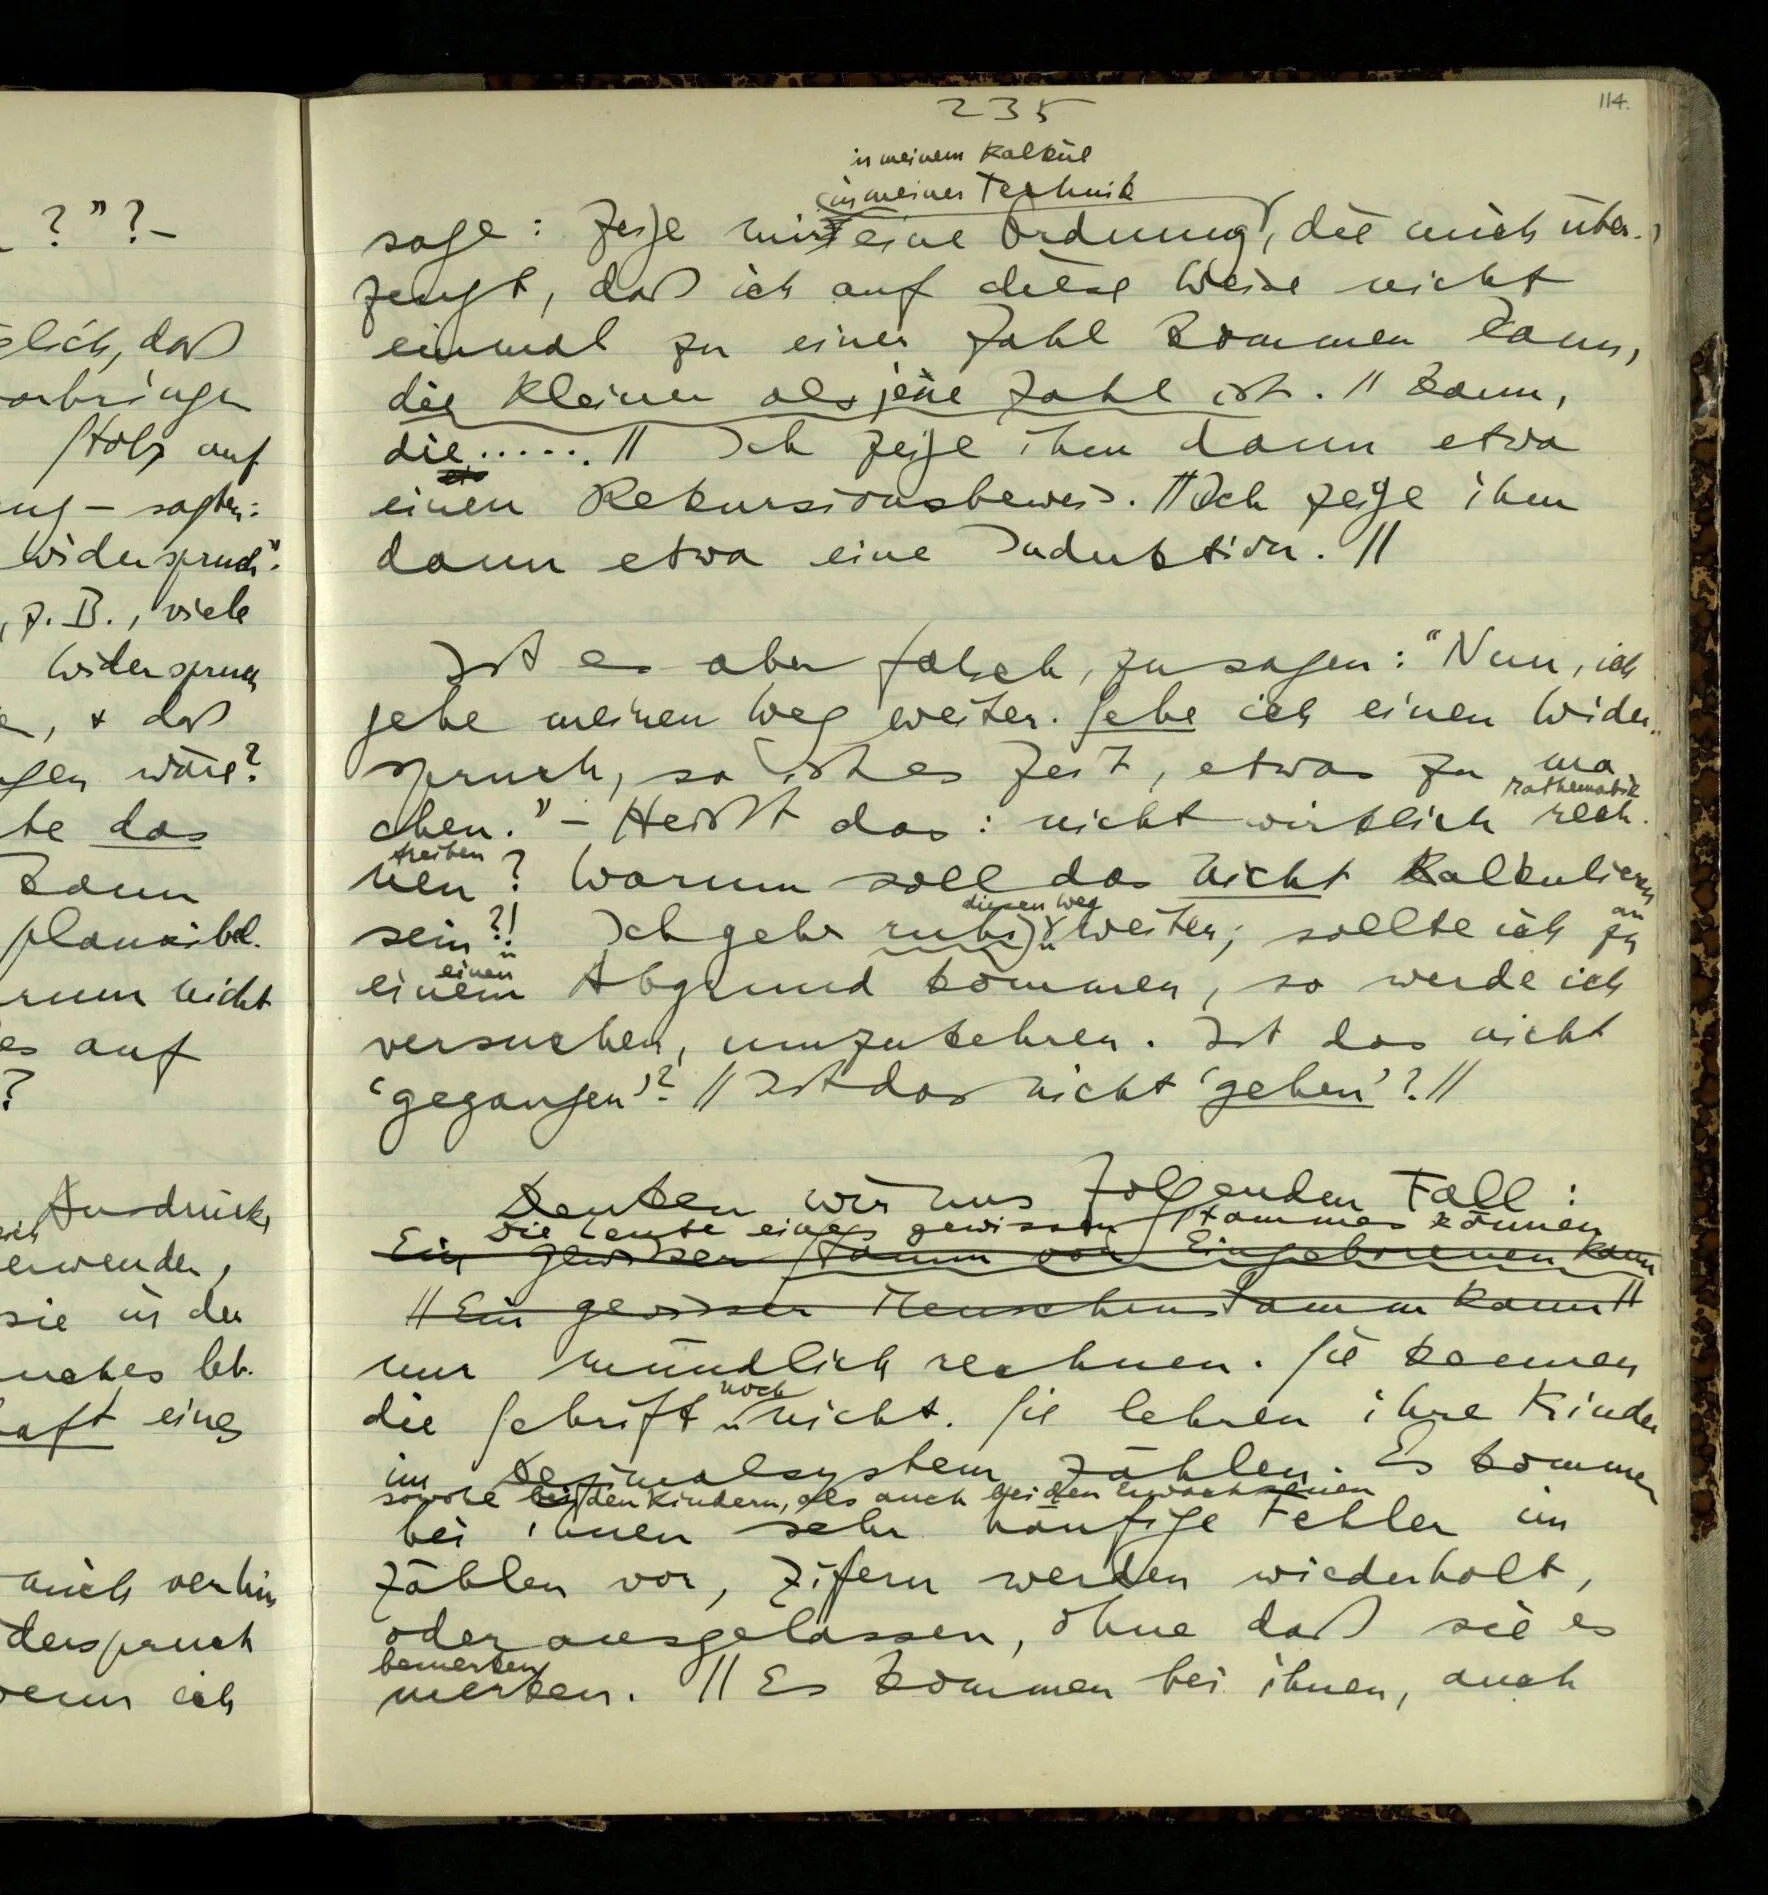 ? " ? –
glich, daß
orbringen
Holz auf
ung – sagten:
Widerspruch".
, z.B., viele
Widerspruch
, & daß
gen wäre?
te das
kann
plausibel.
rum nicht
es auf
?
Ausdruck,
ich
erwenden,
sie in der
uches leb-
haft eines
mich verhin
derspruch
wenn ich
235
114.
in meinem Kalkül
in meiner Technik
sage: Zeige mir eine Ordnung, die mich über-
zeugt, daß ich auf diese Weise nicht
einmal zu einer Zahl kommen kann,
die kleiner als jene Zahl ist. // kann,
die ...... // Ich zeige ihm dann etwa
einen Rekursionsbeweis. // Ich zeige ihm
dann etwa eine Induktion. //
Ist es aber falsch, zu sagen: "Nun, ich
gehe meinen Weg weiter. Sehe ich einen Wider-
spruch, so ist es Zeit, etwas zu ma-
Mathematik
chen." – Heißt das: nicht wirklich rech-
treiben
nen? Warum soll das nicht Kalkulieren
diesen Weg
an
sein?! Ich gehe ruhig weiter; sollte ich zu
einen
einem Abgrund kommen, so werde ich
versuchen, umzukehren. Ist das nicht
'gegangen'? // Ist das nicht 'gehen'? //
Denken wir uns folgenden Fall:
Die Leute eines gewissen Stammes können
Ein gewisser Stamm von Eingeborenen kann
// Ein gewisser Menschenstamm kann //
nur mündlich rechnen. Sie kennen
noch
die Schrift nicht. Sie lehren ihre Kinder
im Dezimalsystem zählen. Es kommen
sowohl bei den Kindern, als auch bei den Erwachsenen
bei ihnen sehr häufige Fehler im
Zählen vor, Ziffern werden wiederholt,
oder ausgelassen, ohne daß sie es
bemerken
merken. // Es kommen bei ihnen, auch